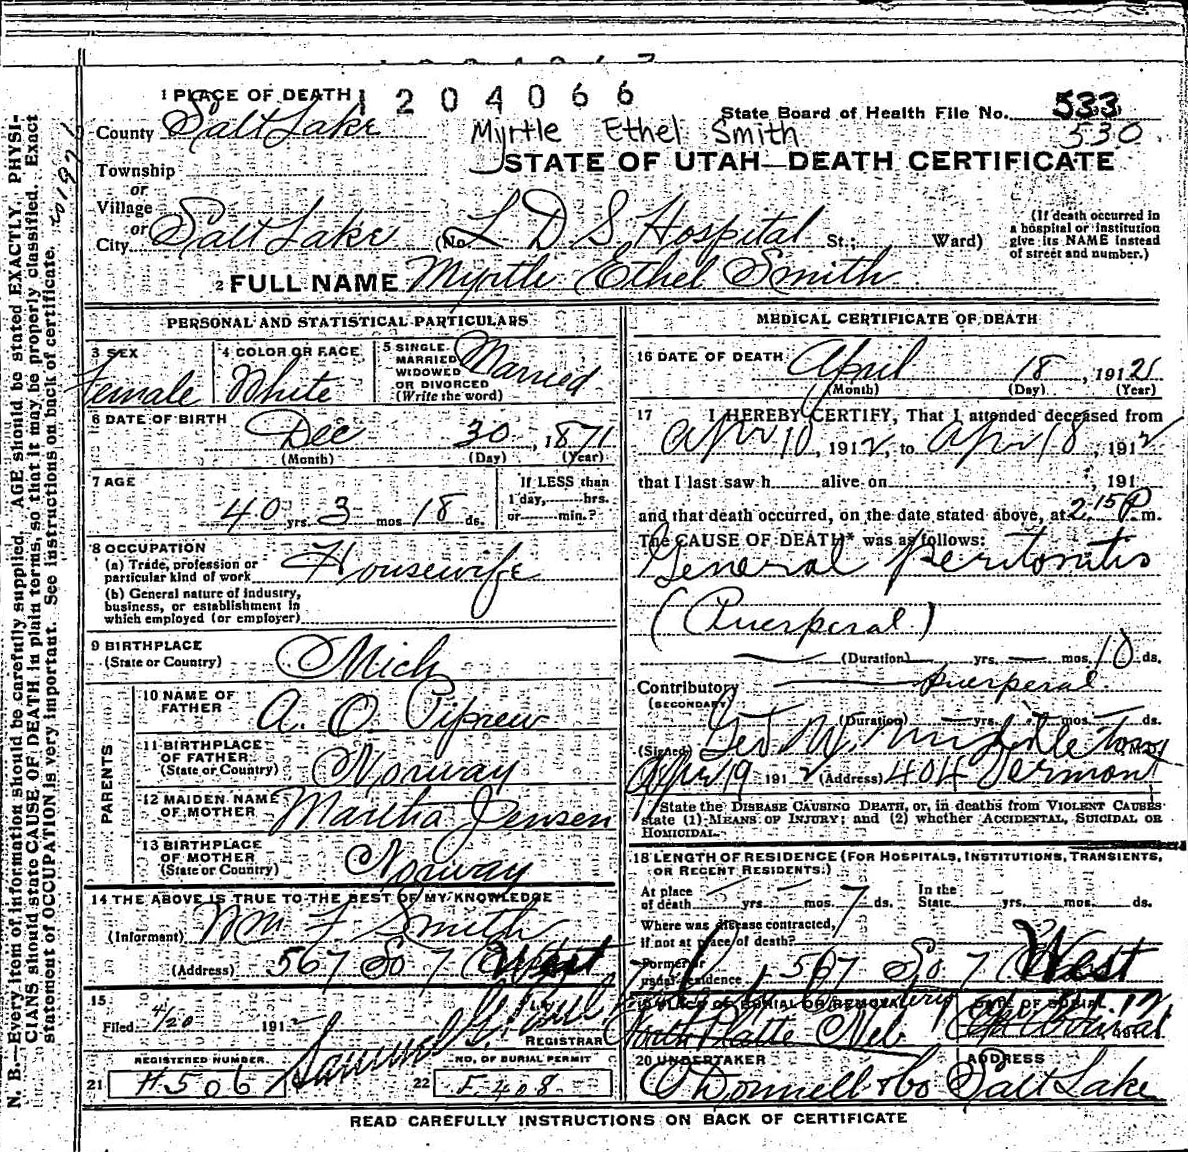 1 PLACE OF DEATH
1204066
State Board of Health File No. 533
530
County Salt Lake
Myrtle Ethel Smith
STATE OF UTAH—DEATH CERTIFICATE
Township
or
Village
or
City Salt Lake (No. L D S Hospital St.; Ward)
(If death occurred in
a hospital or institution
give its NAME instead
of street and number.)
2 FULL NAME Myrtle Ethel Smith
PERSONAL AND STATISTICAL PARTICULARS
3 SEX
Female
4 COLOR OR RACE
White
5 SINGLE
MARRIED
WIDOWED
OR DIVORCED
(Write the word)
Married
6 DATE OF BIRTH
Dec 30, 1871
(Month) (Day) (Year)
7 AGE
40 yrs. 3 mos. 18 ds.
If LESS than
1 day, hrs.
or min.?
8 OCCUPATION
(a) Trade, profession or
particular kind of work Housewife
(b) General nature of industry,
business, or establishment in
which employed (or employer)
9 BIRTHPLACE
(State or Country) Mich
PARENTS
10 NAME OF
FATHER A. O.
11 BIRTHPLACE
OF FATHER
(State or Country) Norway
12 MAIDEN NAME
OF MOTHER Martha Jensen
13 BIRTHPLACE
OF MOTHER
(State or Country) Norway
14 THE ABOVE IS TRUE TO THE BEST OF MY KNOWLEDGE
(Informant) Wm F Smith
(Address) 567 So 7 West
15
Filed 4/20 191
REGISTRAR
REGISTERED NUMBER.
21 H506
NO. OF BURIAL PERMIT
22 F. 408
MEDICAL CERTIFICATE OF DEATH
16 DATE OF DEATH
April 18, 1912
(Month) (Day) (Year)
17 I HEREBY CERTIFY, That I attended deceased from
Apr 10, 1912, to Apr 18, 1912
that I last saw h alive on , 191
and that death occurred, on the date stated above, at 2.15 P. m.
The CAUSE OF DEATH* was as follows:
General peritonitis
(Puerperal)
(Duration) yrs. mos. 10 ds.
Contributory puerperal
(SECONDARY)
(Duration) yrs. mos. ds.
(Signed) Geo. W. Middleton M.D.
Apr 19 1912 (Address) 404 Vermont
*State the DISEASE CAUSING DEATH, or, in deaths from VIOLENT CAUSES
state (1) MEANS OF INJURY; and (2) whether ACCIDENTAL, SUICIDAL OR
HOMICIDAL.
18 LENGTH OF RESIDENCE (FOR HOSPITALS, INSTITUTIONS, TRANSIENTS,
OR RECENT RESIDENTS.)
At place
of death yrs. mos. 7 ds.
In the
State yrs. mos. ds.
Where was disease contracted,
if not at place of death?
Former or
usual residence 567 So 7 West
19 PLACE OF BURIAL OR REMOVAL
North Platte Neb
DATE OF BURIAL
20 UNDERTAKER
O'Donnell & Co
ADDRESS
Salt Lake
READ CAREFULLY INSTRUCTIONS ON BACK OF CERTIFICATE
N. B.—Every item of information should be carefully supplied. AGE should be stated EXACTLY. PHYSI-
CIANS should state CAUSE OF DEATH in plain terms, so that it may be properly classified. Exact
statement of OCCUPATION is very important. See instructions on back of certificate.